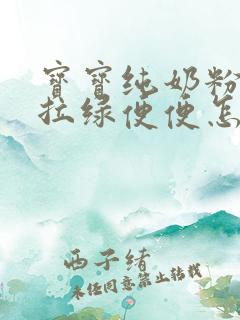 宝宝纯奶粉
拉绿便便怎
西子绪
未经同意禁止转载